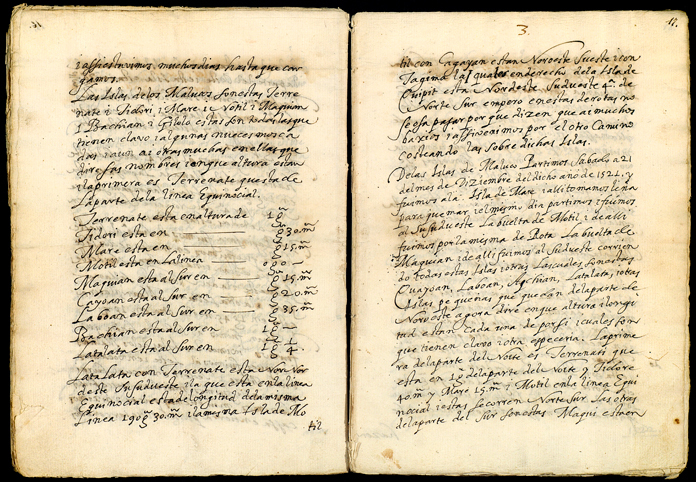 i assi estuvimos muchos dias hasta que car
gamos.
Las Islas delos Malucos son estas Terre
nate i Tidori i Mare i Motil i Maquian
i Bachian i Gilolo estas son todas las que
tienen clavo i algunas nueces mosca
das i aun ai otras muchas en ellas que
dire sus nombres i en que altura estan
i la primera es Terrenate questa de
la parte de la linea Equinocial.
Terrenate esta en altura de 1g
Tidori esta en g 30.m
Mare esta en g 15.m
Motil esta en La linea 0 0 0
Maquian esta al Sur en g 15.m
Cayoan esta al Sur en g 20.m
Laboan esta al Sur en g 35.m
Bachian esta al Sur en 1g
Latalata esta al Sur en 1g 1/4.
Lata Lata con Terrenate esta Nor Nor
deste Susudueste i la que esta en la linea
Equinocial esta de longitud de la misma
Linea 190g 30.m i la mesma Isla de Mo
til
3.
17.
til con Cagayan estan Noroeste Sueste i con
Tagima la qual es en derecho de la Isla de
Quipit esta Nordeste Sudueste qª. de
Norte Sur empero en estas derotas no
se osa pasar por que dizen que ai muchos
baxios i assi venimos por el otro Camino
costeando las sobre dichas Islas.
De las Islas de Maluco Partimos Sabado a 21
del mes de Diziembre del dicho año de 1521. y
fuimos a la Isla de Mare i alli tomamos leña
para quemar i el mismo dia partimos i fuimos
al Susudueste La buelta de Motil i de alli
fuimos por la mesma de Rota La buelta de
Maquian i de alli fuimos al Sudueste corrien
do todas estas Islas i otras Las cuales son estas
Cuayoan, Laboan, Agchian, Latalata, i otras
Islas pequeñas que quedan de la parte de
Noroeste agora dire en que altura i longi
tud estan Cada una de por si i cuales son
que tienen clavo i otra especeria. La prime
ra de la parte del Norte es Terrenati que
esta en 1g de la parte del Norte y Tidore
40.m y Mare 15.m i Motil en la linea Equi
nocial i estas se corren Norte Sur. Las otras
de la parte del Sur son estas Maqui esta en